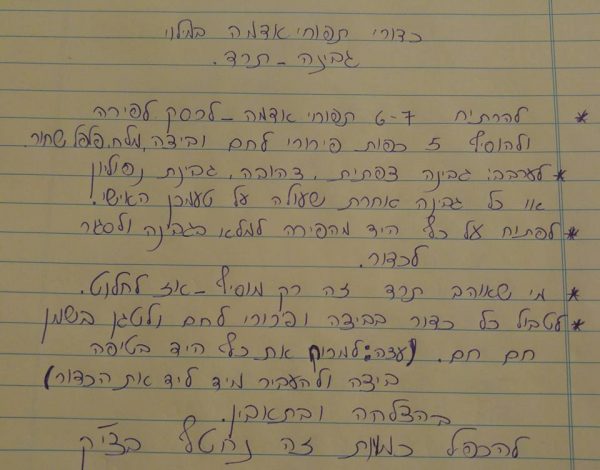 כדורי תפוחי אדמה במילוי
גבינה - תרד.
* להרתיח 6-7 תפוחי אדמה - לרסק לפירה
ולהוסיף 5 כפות פירורי לחם וביצה, מלח, פלפל שחור.
* לערבב: גבינה צפתית, צהובה, גבינת נפוליון
או כל גבינה אחרת שעולה על טעמכן האישי.
* לפתיח על כף היד מהפירה למלא בגבינה ולסגר
לכדור.
* מי שאוהב תרד זה רק מוסיף - אז לחלוט.
* לטבול כל כדור בביצה ופירורי לחם ולטגן בשמן
חם חם. (עצה: למרוח את כף היד בטיפה
ביצה ולהעביר מיד ליד את הכדור)
בהצלחה ובתאבון.
להכפיל כמות זה נחטף בצ'יק